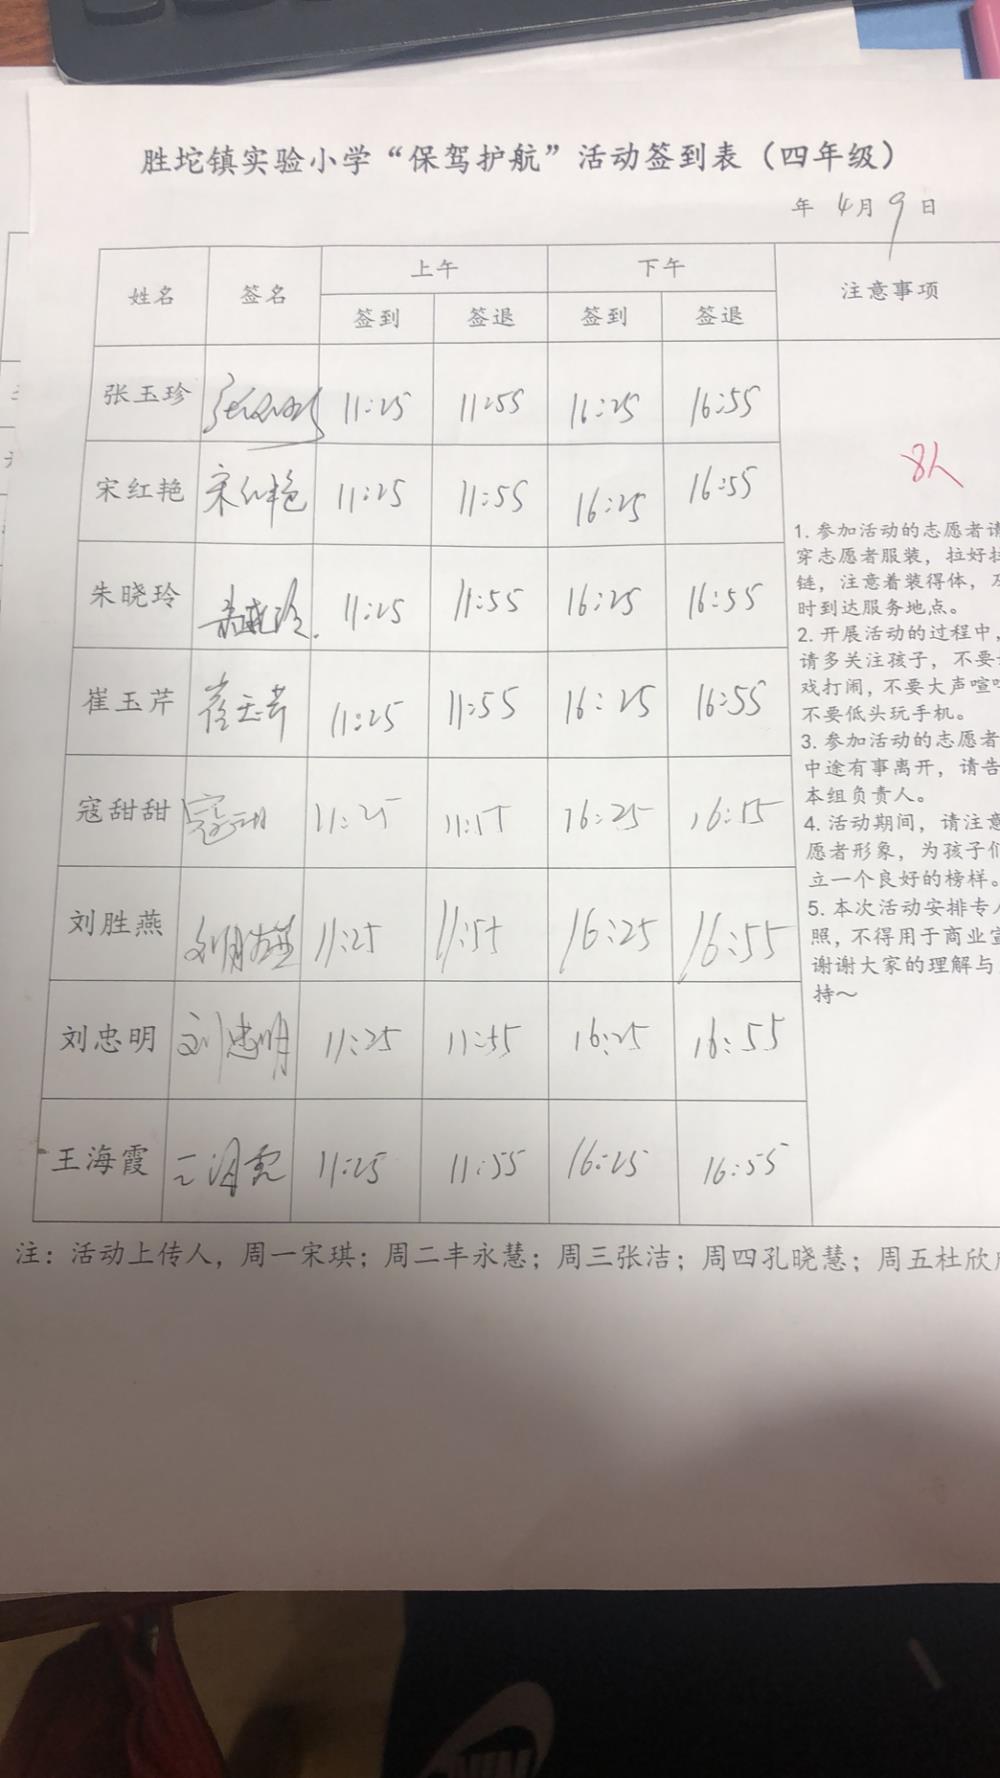 胜坨镇实验小学“保驾护航”活动签到表（四年级）
年 4月9日
姓名 签名 上午 下午 注意事项
签到 签退 签到 签退
张玉珍 11:25 11:55 16:25 16:55
8人
宋红艳 宋红艳 11:25 11:55 16:25 16:55
朱晓玲 朱晓玲 11:25 11:55 16:25 16:55
崔玉芹 崔玉芹 11:25 11:55 16:25 16:55
寇甜甜 寇甜甜 11:25 11:55 16:25 16:55
刘胜燕 刘胜燕 11:25 11:55 16:25 16:55
刘忠明 刘忠明 11:25 11:55 16:25 16:55
王海霞 王海霞 11:25 11:55 16:25 16:55
1. 参加活动的志愿者请
穿志愿者服装，拉好拉
链，注意着装得体，及
时到达服务地点。
2. 开展活动的过程中，
请多关注孩子，不要
戏打闹，不要大声喧哗
不要低头玩手机。
3. 参加活动的志愿者
中途有事离开，请告
本组负责人。
4. 活动期间，请注意
愿者形象，为孩子们
立一个良好的榜样。
5. 本次活动安排专人
照，不得用于商业宣
谢谢大家的理解与
持～
注：活动上传人，周一宋琪；周二丰永慧；周三张洁；周四孔晓慧；周五杜欣